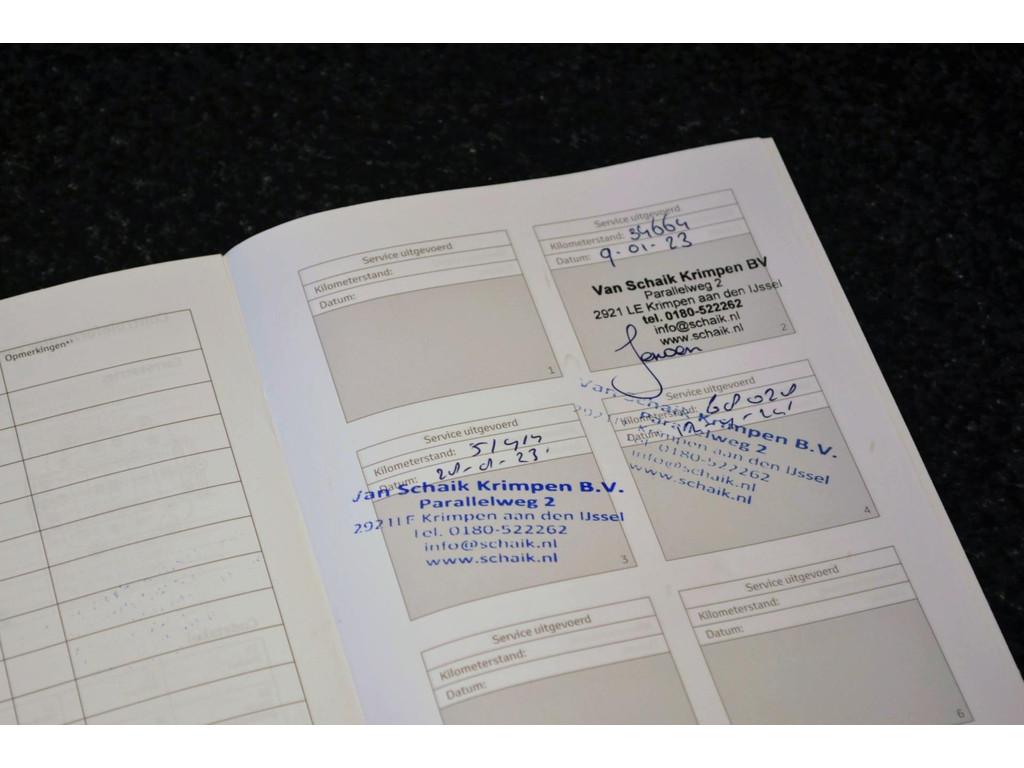 Opmerkingen*¹
Service uitgevoerd
Kilometerstand:
Datum:
1
Service uitgevoerd
Kilometerstand: 34664
Datum: 9-01-23
Van Schaik Krimpen BV
Parallelweg 2
2921 LE Krimpen aan den IJssel
tel. 0180-522262
info@schaik.nl
www.schaik.nl
Jeroen
2
Service uitgevoerd
Kilometerstand:
Datum:
Van Schaik Krimpen B.V.
Parallelweg 2
Krimpen aan den IJssel
Tel. 0180-522262
info@schaik.nl
www.schaik.nl
3
Service uitgevoerd
Kilometerstand:
Datum:
Van Schaik Krimpen B.V.
Parallelweg 2
Krimpen aan den IJssel
0180-522262
info@schaik.nl
www.schaik.nl
4
Service uitgevoerd
Kilometerstand:
Datum:
Service uitgevoerd
Kilometerstand:
Datum:
6